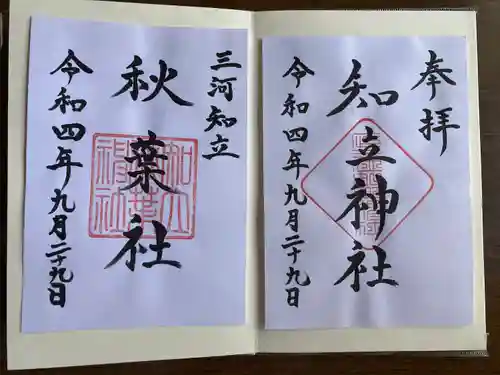 奉拝
知立神社
令和四年九月二十九日
三河知立
秋葉社
令和四年九月二十九日